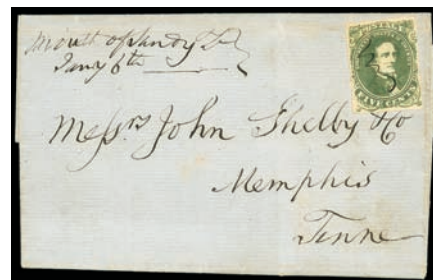 Mouth of Sandy Te
Jany 6th
5
FIVE CENTS
Messrs John Shelby & Co
Memphis
Tenne